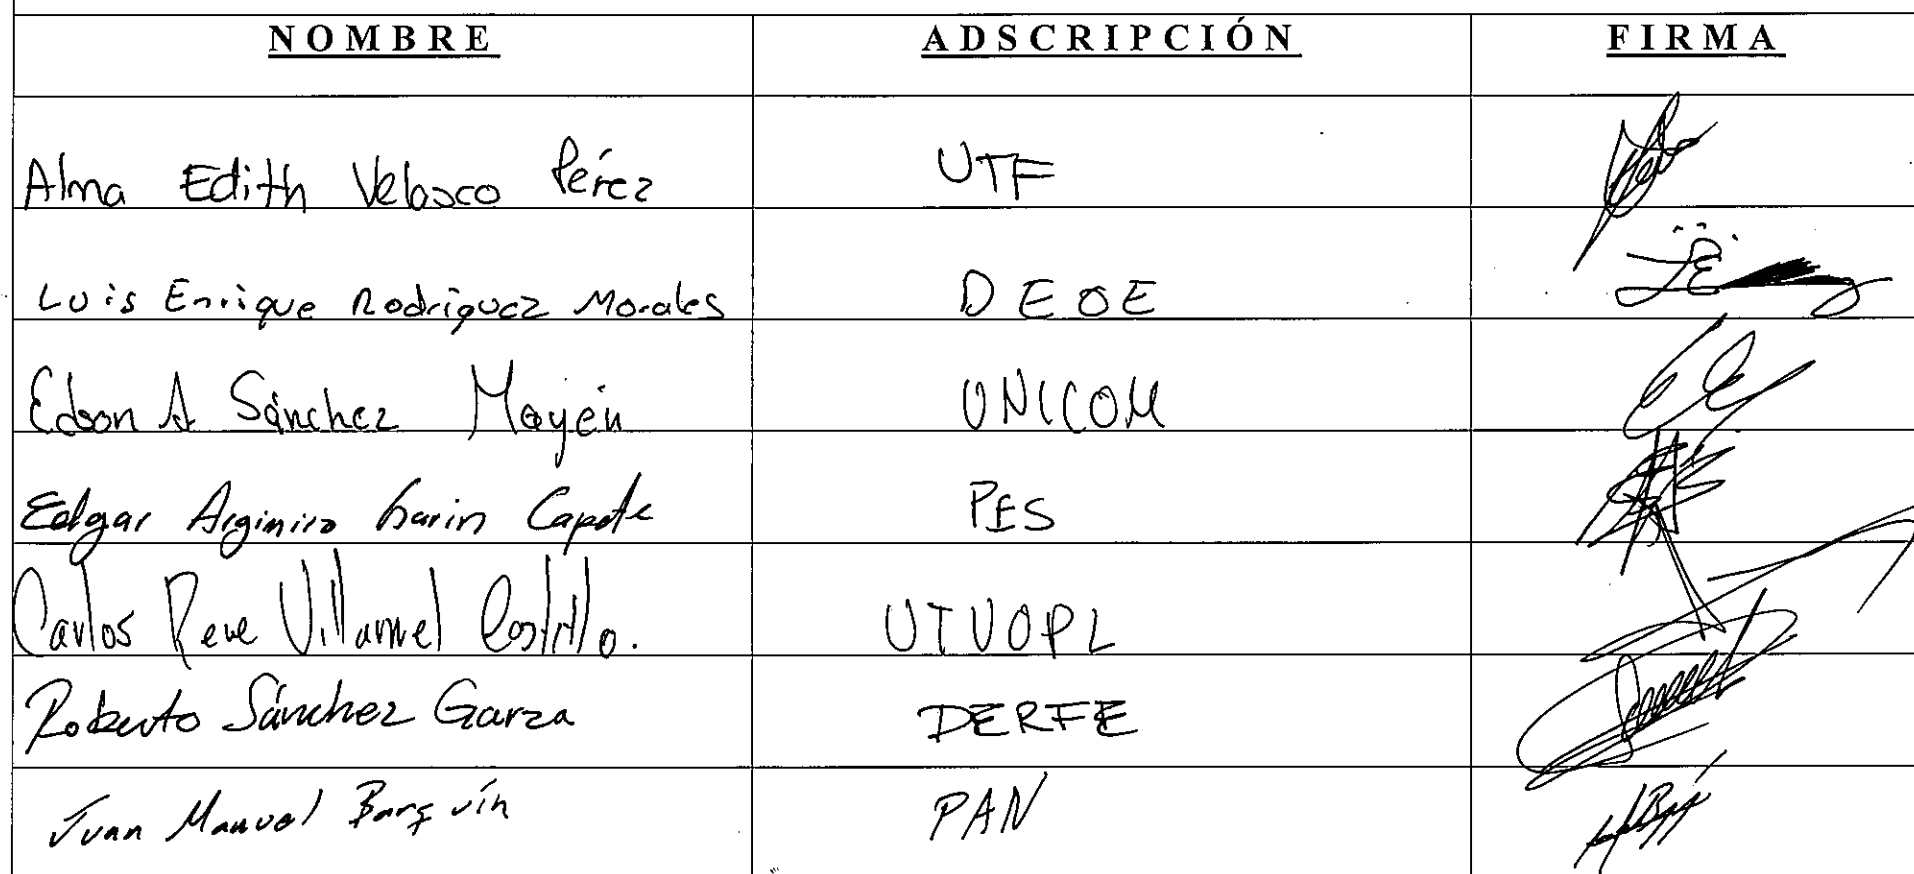 NOMBRE ADSCRIPCIÓN FIRMA
Alma Edith Velasco Pérez UTF
Luis Enrique Rodríguez Morales DEOE
Edson A Sánchez Mayén UNICOM
Edgar Argimiro Garin Capote PES
Carlos Rene Villarruel Castillo. UTVOPL
Roberto Sánchez Garza DERFE
Juan Manuel Barquín PAN